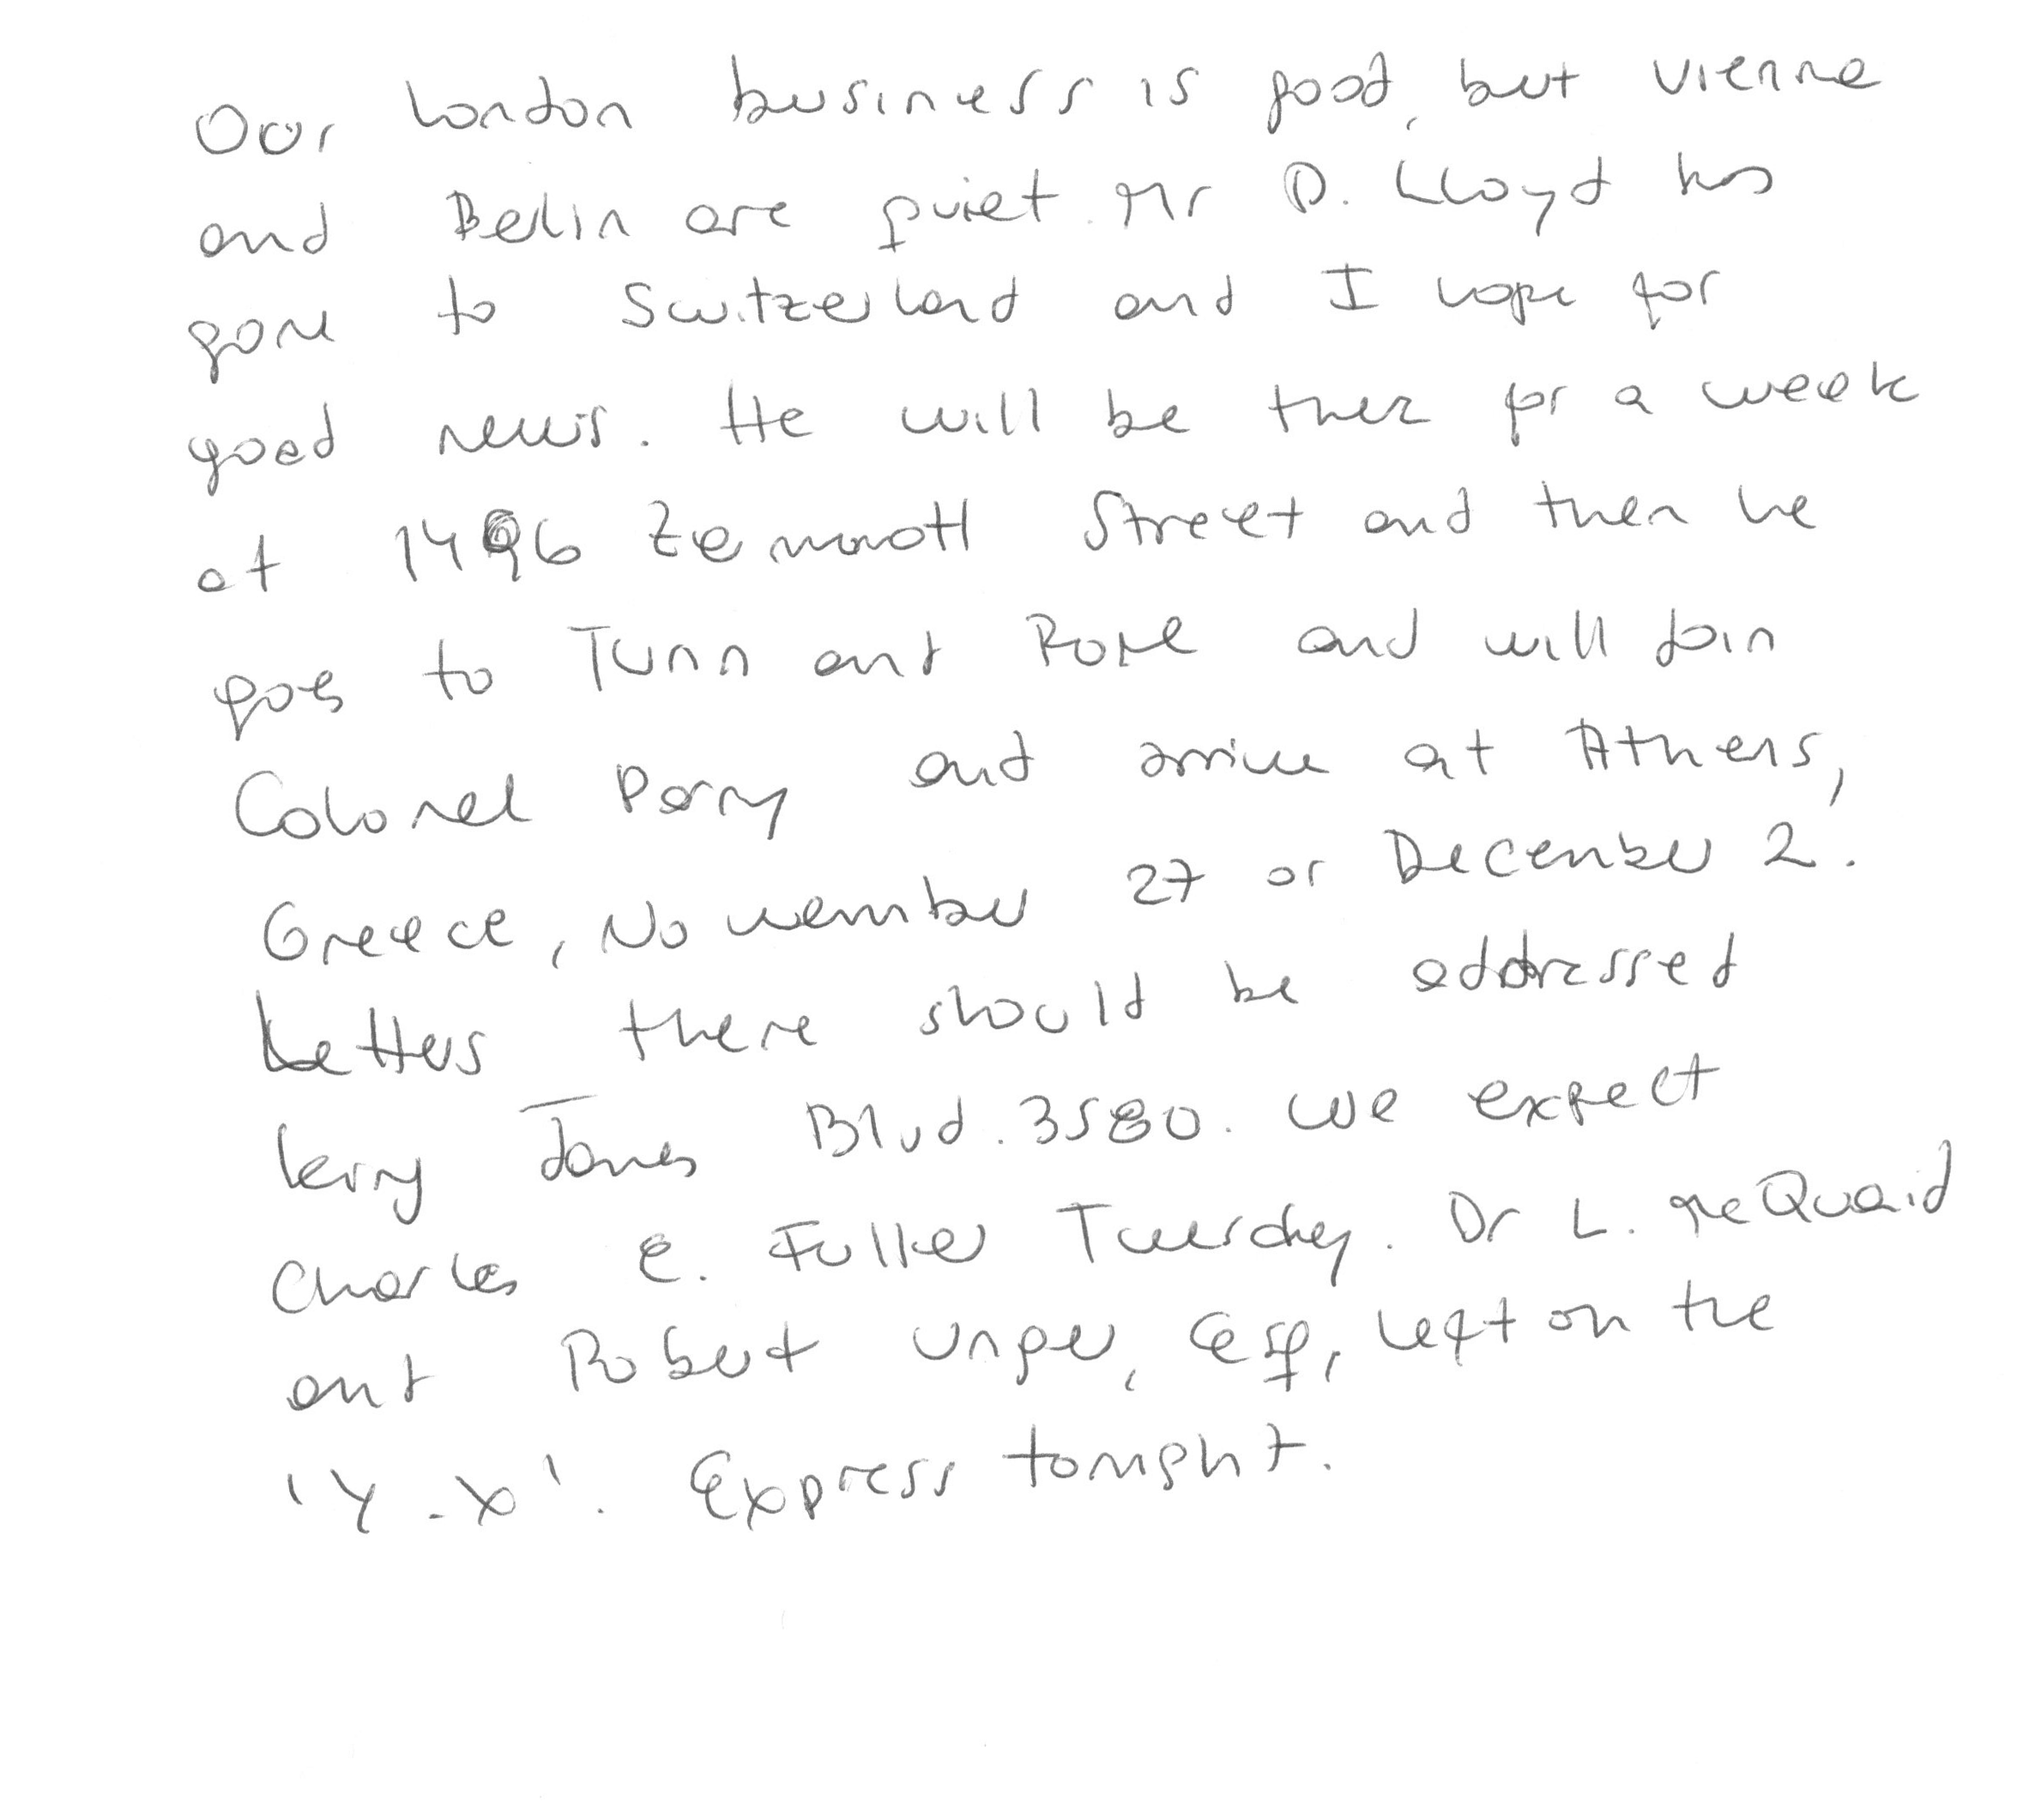 Our London business is good, but Vienna
and Berlin are quiet. Mr D. Lloyd has
gone to Switzerland and I hope for
good news. He will be there for a week
at 1496 Zermott Street and then he
goes to Turin and Rome and will join
Colonel Parry and arrive at Athens,
Greece, November 27 or December 2.
Letters there should be addressed
King James Blvd. 3580. We expect
Charles E. Fuller Tuesday. Dr L. McQuaid
and Robert Unger, Esq, left on the
'Y.X'. Express tonight.